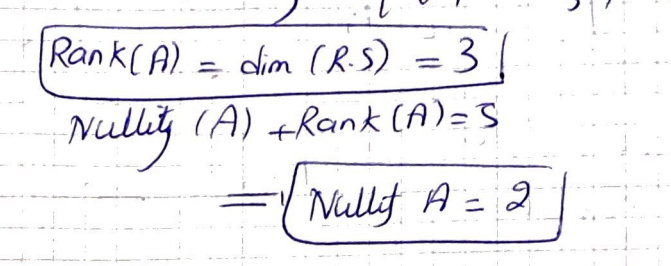 Rank(A) = dim (R.S) = 3
Nullity (A) + Rank(A) = 5
= Nullit A = 2